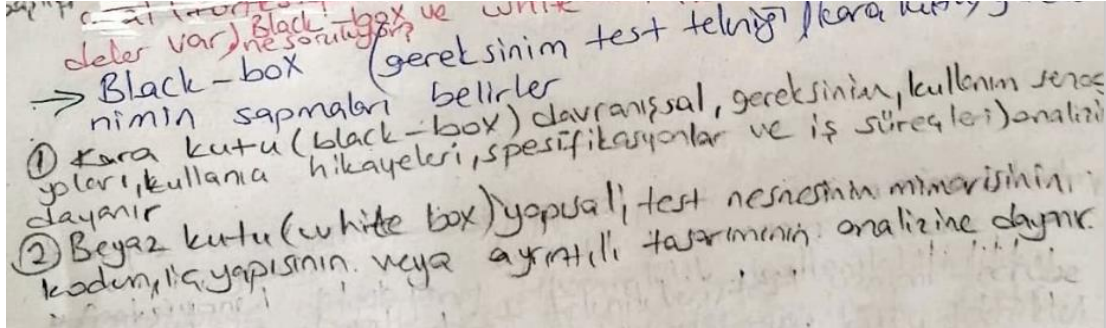 deler var) Black-box ve white
ne soruluyor?
→ Black-box (gereksinim test tekniği) (kara
nimin sapmaları belirler
① Kara kutu (black-box) davranışsal, gereksinim, kullanım senar
yoları, kullanıcı hikayeleri, spesifikasyonlar ve iş süreçleri) analizi
dayanır
② Beyaz kutu (white box) yapısal; test nesnesinin mimarisinin,
kodun, iç yapısının veya ayrıntılı tasarımının analizine dayanır.